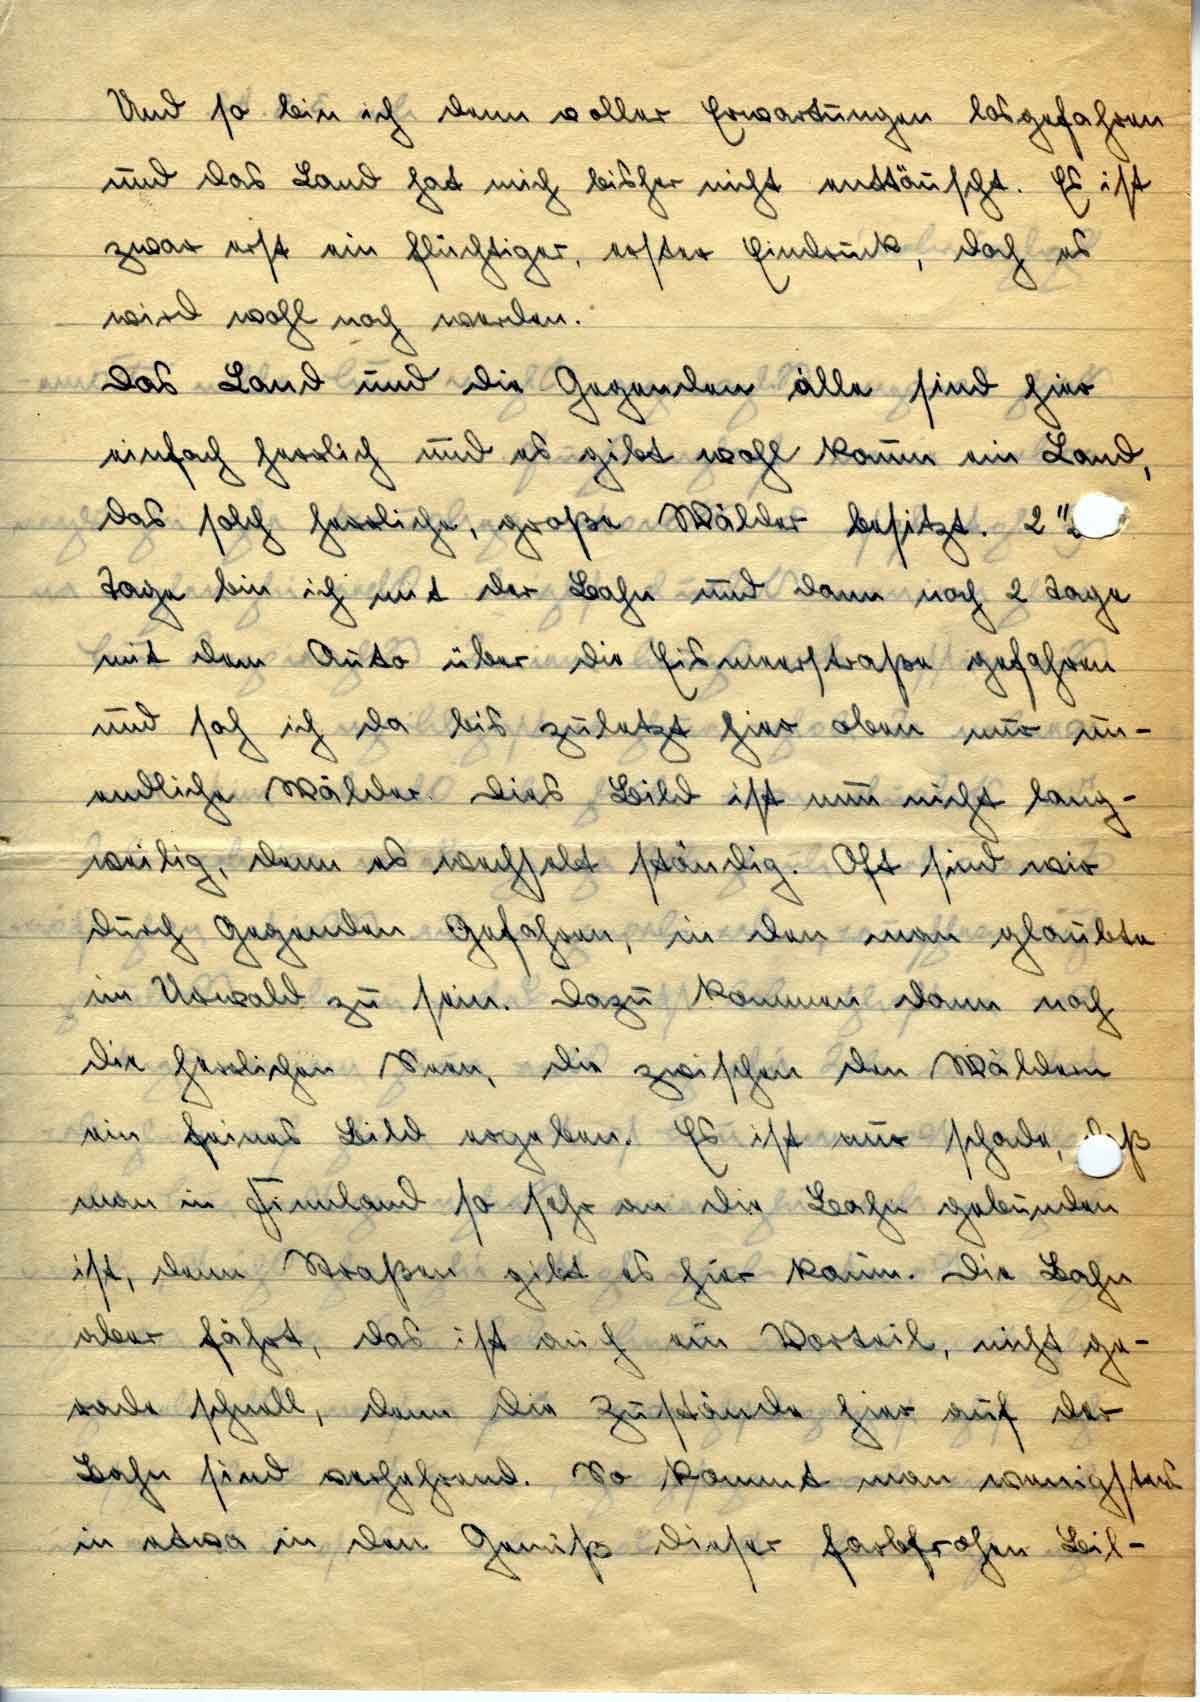 Und so bin ich denn voller Erwartungen losgefahren
und das Land hat mich bisher nicht enttäuscht. Es ist
zwar erst ein flüchtiger, erster Eindruck, doch es
wird wohl noch werden.
Das Land und die Gegenden alle sind hier
einfach herrlich und es gibt wohl kaum ein Land,
das solch herrliche, große Wälder besitzt. 2
Tage bin ich mit der Bahn und dann noch 2 Tage
mit dem Auto über die Eismeerstraße gefahren
und sah ich da bis zuletzt hier oben nur un-
endliche Wälder. Dies Bild ist nun nicht lang-
weilig, denn es wechselt ständig. Oft sind wir
durch Gegenden Gefahren, in den man glaubte
im Urwald zu sein. Dazu kommen dann noch
die herrlichen Seen, die zwischen den Wäldern
ein feines Bild ergeben. Es ist nur schade, daß
man in Finnland so sehr an die Bahn gebunden
ist, denn Straßen gibt es hier kaum. Die Bahn
aber fährt, das ist auch ein Vorteil, nicht ge-
rade schnell, denn die Zustände hier auf der
Bahn sind verheerend. So kommt man wenigstes
in etwa in den Genuß dieser farbfrohen Bil-